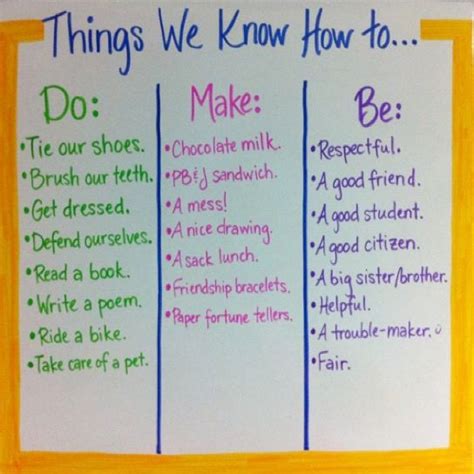 Things We Know How to...
Do:
•Tie our shoes.
•Brush our teeth.
•Get dressed.
•Defend ourselves.
•Read a book.
•Write a poem.
•Ride a bike.
•Take care of a pet.
Make:
•Chocolate milk.
•PB&J sandwich.
•A mess!
•A nice drawing.
•A sack lunch.
•Friendship bracelets.
•Paper fortune tellers.
Be:
•Respectful.
•A good friend.
•A good student.
•A good citizen.
•A big sister/brother.
•Helpful.
•A trouble-maker.☺
•Fair.